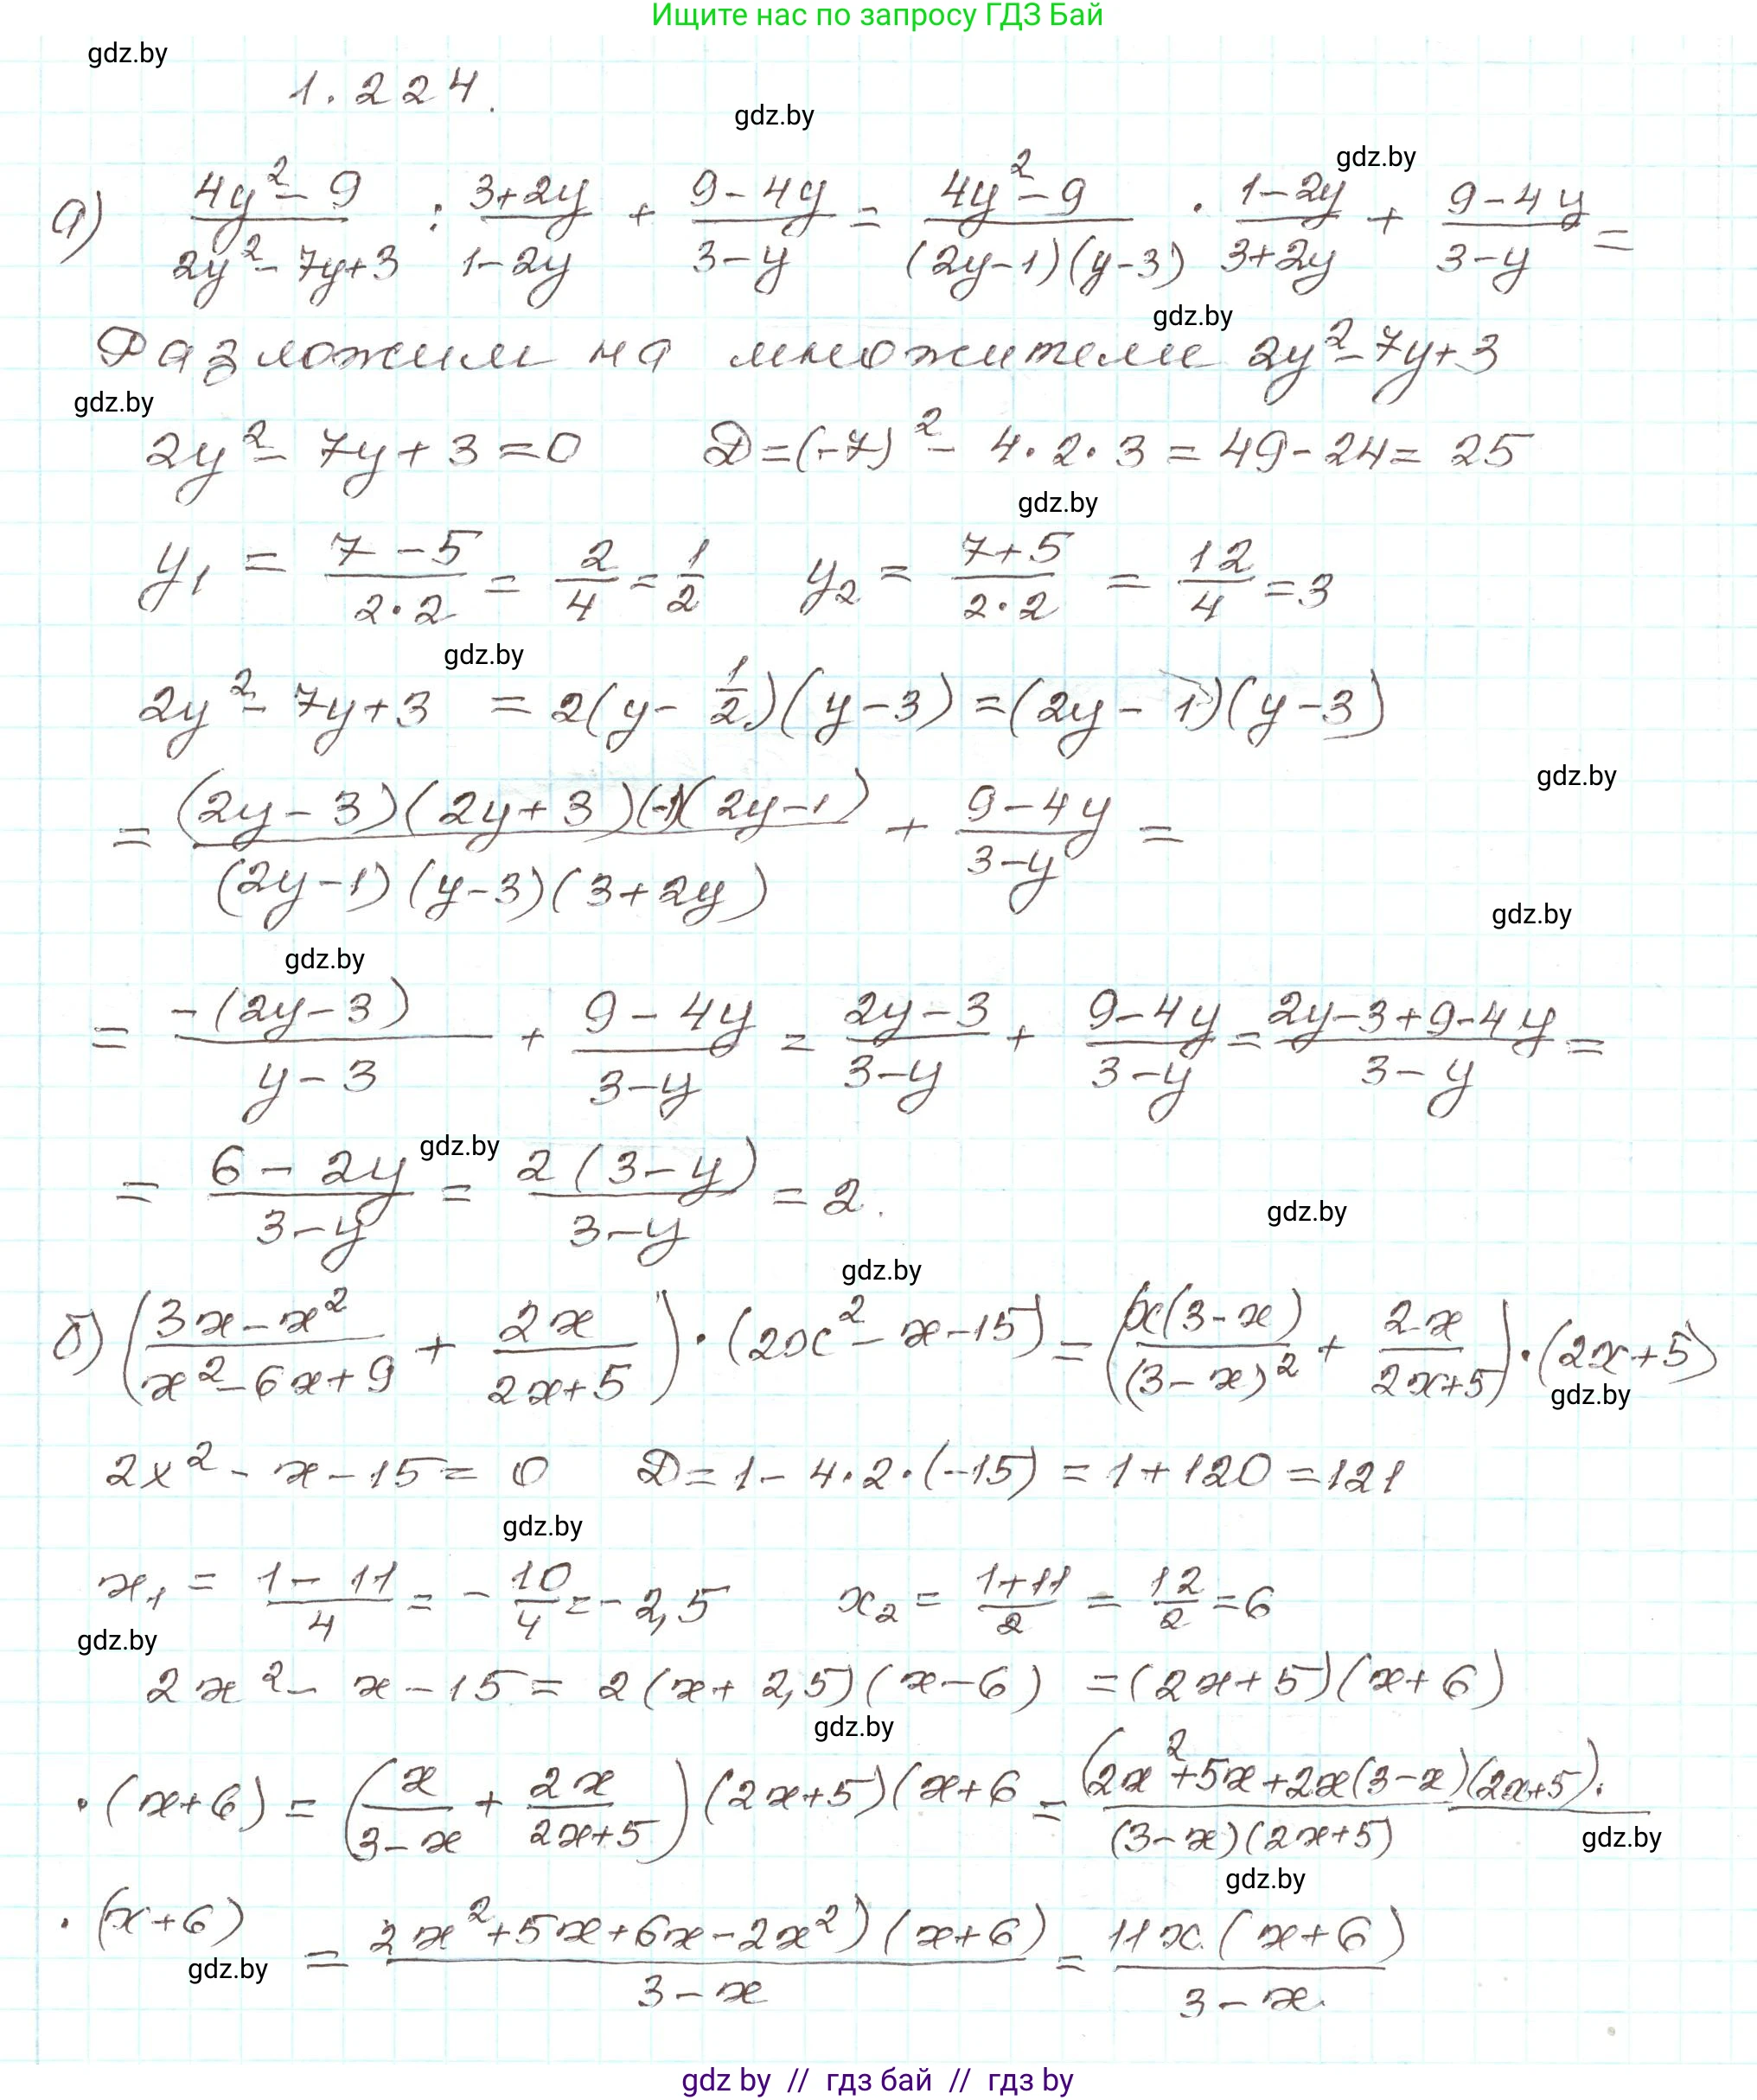 Ищите нас по запросу ГДЗ Бай
gdz.by
1.224.
gdz.by
gdz.by
а) (4y² - 9)/(2y² - 7y + 3) : (3+2y)/(1-2y) + (9-4y)/(3-y) = (4y² - 9)/((2y-1)(y-3)) · (1-2y)/(3+2y) + (9-4y)/(3-y) =
gdz.by
Разложим на множители 2y² - 7y + 3
gdz.by
2y² - 7y + 3 = 0 D = (-7)² - 4·2·3 = 49 - 24 = 25
gdz.by
y₁ = (7-5)/(2·2) = 2/4 = 1/2 y₂ = (7+5)/(2·2) = 12/4 = 3
gdz.by
2y² - 7y + 3 = 2(y - 1/2)(y-3) = (2y-1)(y-3)
gdz.by
= ((2y-3)(2y+3)(-1)(2y-1))/((2y-1)(y-3)(3+2y)) + (9-4y)/(3-y) =
gdz.by
gdz.by
= (-(2y-3))/(y-3) + (9-4y)/(3-y) = (2y-3)/(3-y) + (9-4y)/(3-y) = (2y-3+9-4y)/(3-y) =
gdz.by
= (6-2y)/(3-y) = (2(3-y))/(3-y) = 2.
gdz.by
gdz.by
б) ((3x-x²)/(x²-6x+9) + 2x/(2x+5)) · (2x²-x-15) = (x(3-x)/(3-x)² + 2x/(2x+5)) · (2x+5)
gdz.by
2x² - x - 15 = 0 D = 1 - 4·2·(-15) = 1 + 120 = 121
gdz.by
x₁ = (1-11)/4 = -10/4 = -2,5 x₂ = (1+11)/2 = 12/2 = 6
gdz.by
2x² - x - 15 = 2(x+2,5)(x-6) = (2x+5)(x+6)
gdz.by
· (x+6) = (x/(3-x) + 2x/(2x+5))(2x+5)(x+6 = ((2x²+5x+2x(3-x)(2x+5)·)/((3-x)(2x+5))
gdz.by
gdz.by
· (x+6) = (2x²+5x+6x-2x²)(x+6)/(3-x) = 11x(x+6)/(3-x)
gdz.by
gdz by // гдз бай // гдз by